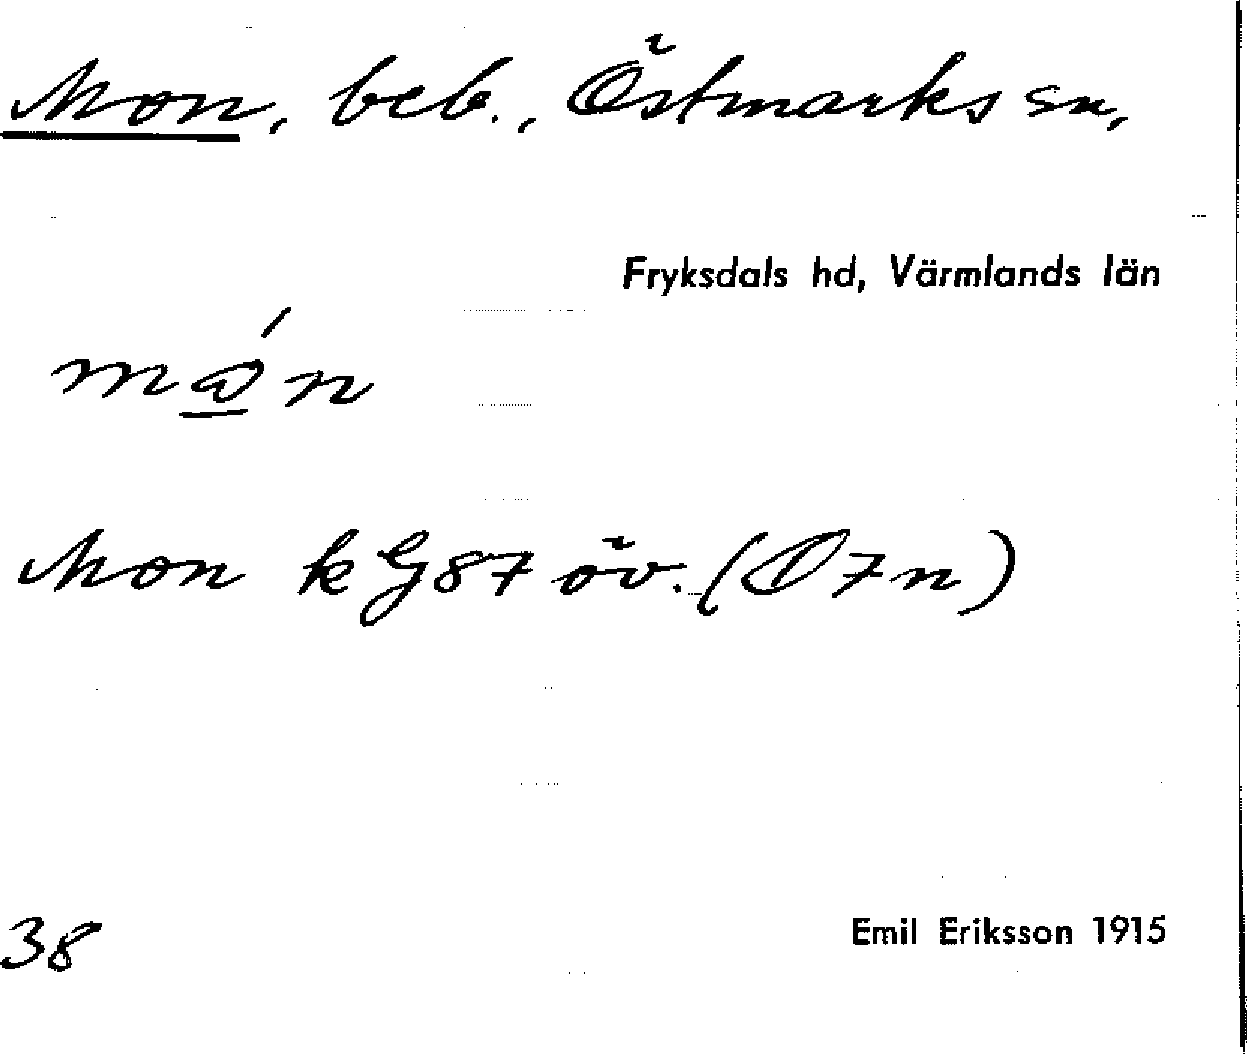 Mon, beb., Östmarks sn,
Fryksdals hd, Värmlands län
Mon k G87 öv. (Ö7n)
38
Emil Eriksson 1915